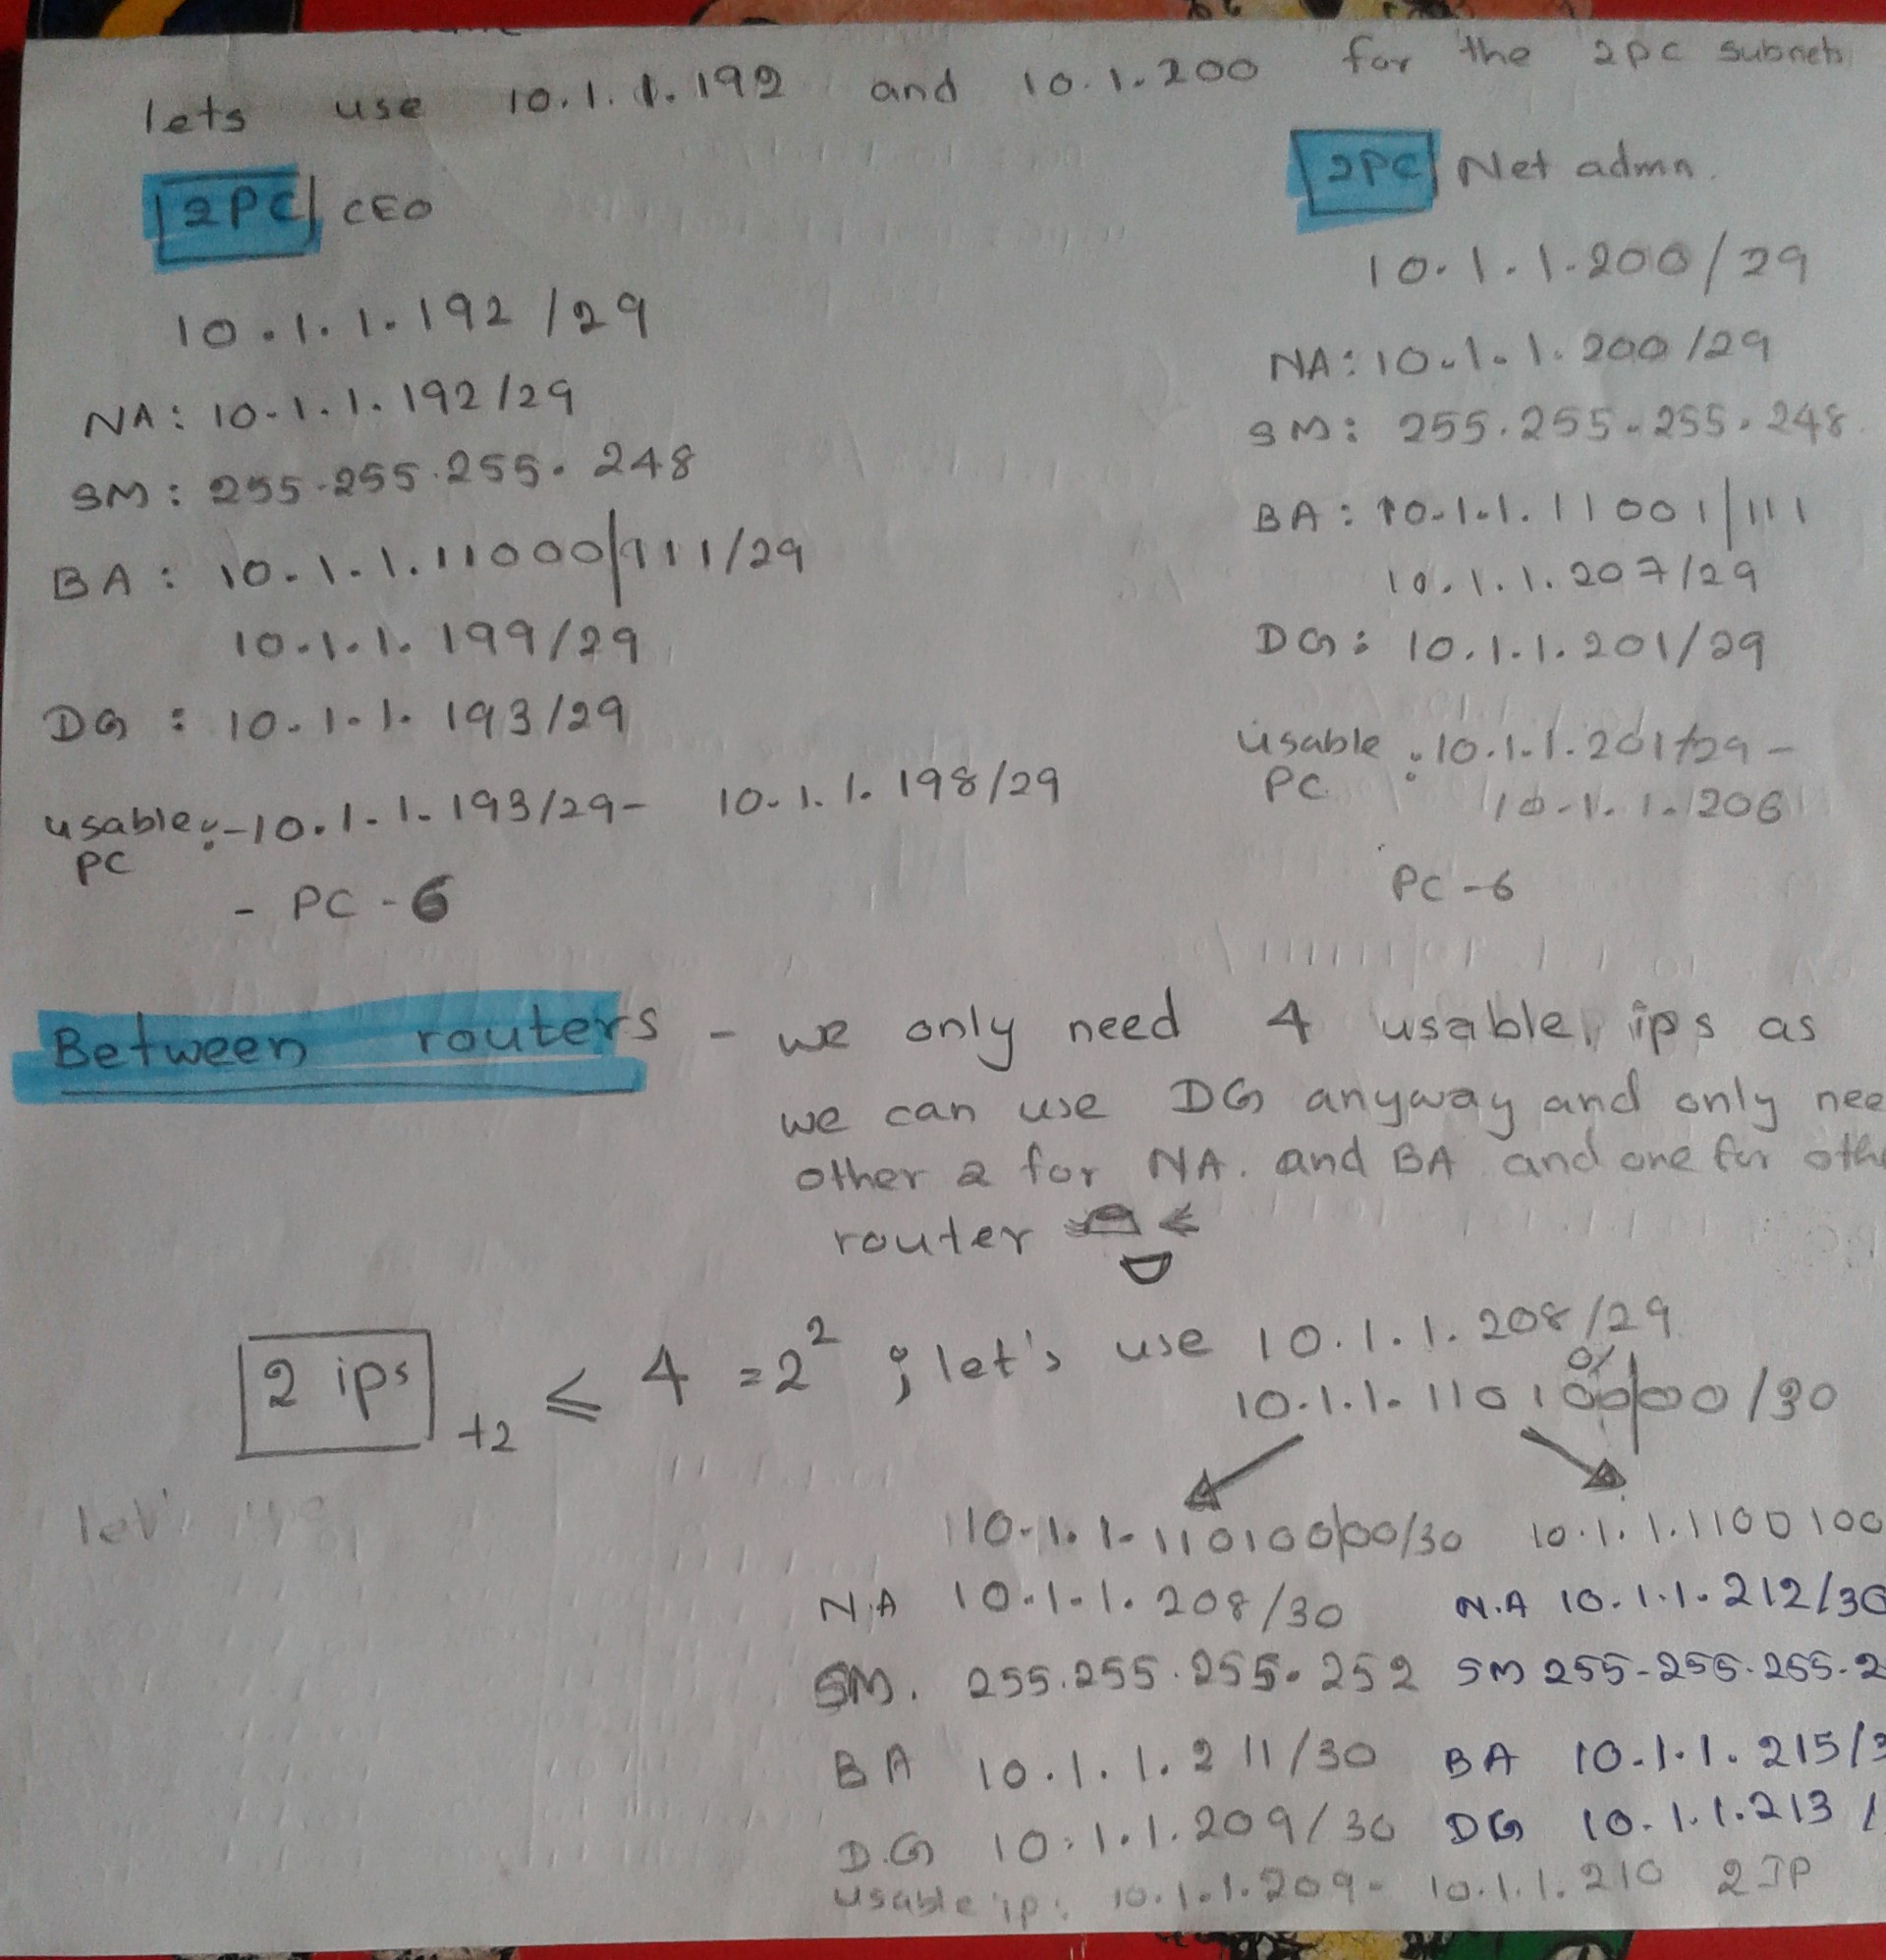 lets use 10.1.1.192 and 10.1.200 for the 2pc subnets
2PC CEO
10.1.1.192/29
NA: 10.1.1.192/29
SM: 255.255.255.248
BA: 10.1.1.11000|111/29
10.1.1.199/29
DG: 10.1.1.193/29
usable PC :- 10.1.1.193/29 - 10.1.1.198/29
- PC - 6
2PC Net admn.
10.1.1.200/29
NA: 10.1.1.200/29
SM: 255.255.255.248
BA: 10.1.1.11001|111
10.1.1.207/29
DG: 10.1.1.201/29
usable PC : 10.1.1.201/29 -
10.1.1.206
PC - 6
Between routers - we only need 4 usable ips as
we can use DG anyway and only nee
other 2 for NA. and BA and one for oth
router
2 ips +2 ≤ 4 = 2² ; let's use 10.1.1.208/29
0/1
10.1.1.110100|00/30
10.1.1.110100|00/30
NA 10.1.1.208/30
SM. 255.255.255.252
BA 10.1.1.211/30
D.G 10.1.1.209/30
usable ip: 10.1.1.209 - 10.1.1.210 2 IP
10.1.1.1100100
N.A 10.1.1.212/30
SM 255-255.255.2
BA 10.1.1.215/3
DG 10.1.1.213 /